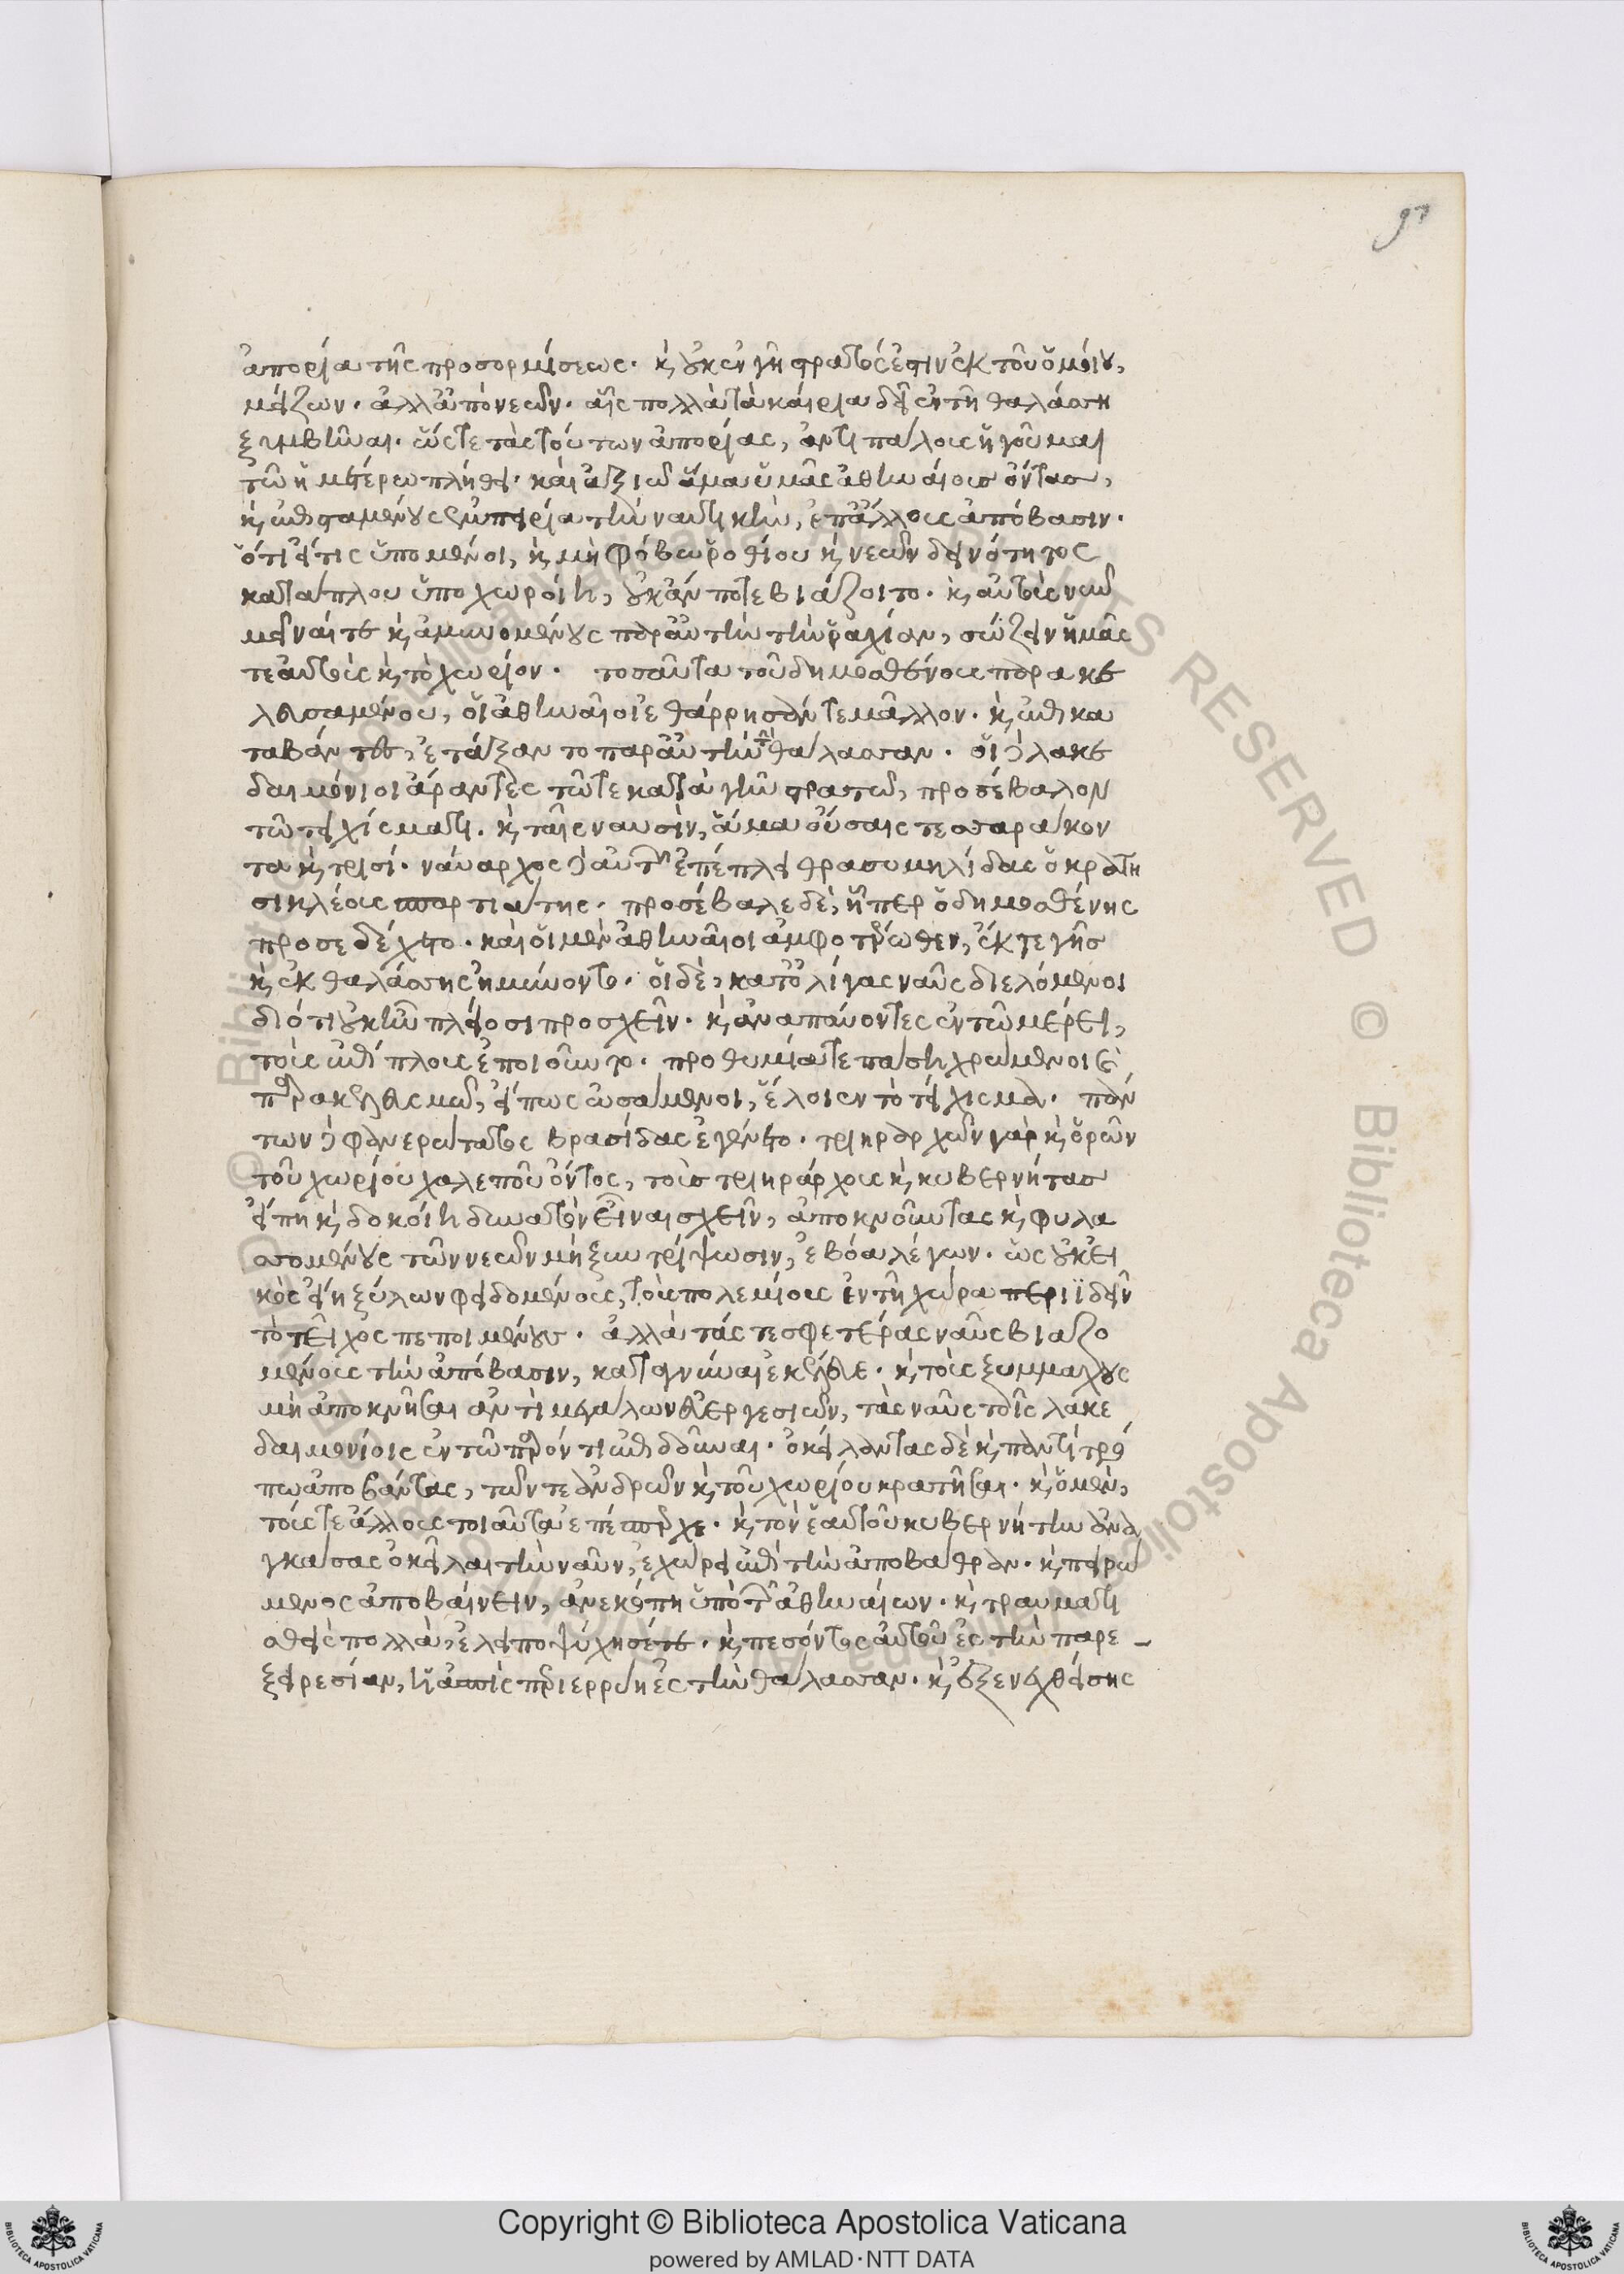 97
ἀπορία τῆς προσορμίσεως. καὶ οὐκ ἐν γῇ στρατός ἐστιν ἐκ τοῦ ὁμοίου,
μείζων. ἀλλ' ἀπὸ νεῶν. αἷς πολλὰ τὰ καίρια δεῖ ἐν τῇ θαλάσσῃ
ξυμβῆναι. ὥστε τὰς τούτων ἀπορίας, ἀντιπάλους ἡγοῦμαι
τῷ ἡμετέρῳ πλήθει. καὶ ἀξιῶ ἅμα ὑμᾶς ἀθηναίους ὄντας,
καὶ ἐπισταμένους ἐμπειρία τὴν ναυτικὴν, ἐπ' ἄλλους ἀπόβασιν.
ὅτι εἴ τις ὑπομένοι, καὶ μὴ φόβῳ ῥοθίου καὶ νεῶν δεινότητος
κατάπλου ὑποχωροίη, οὐκ ἄν ποτε βιάζοιτο. καὶ αὐτοὺς νῦν
μεῖναί τε καὶ ἀμυνομένους παρ' αὐτὴν τὴν ῥαχίαν, σώζειν ἡμᾶς
τε αὐτοὺς καὶ τὸ χωρίον. τοσαῦτα τοῦ δημοσθένους παρακε
λευσαμένου, οἱ ἀθηναῖοι ἐθάρρησάν τε μᾶλλον. καὶ ἐπικα
ταβάντες, ἐτάξαντο παρ' αὐτὴν τὴν θάλασσαν. οἱ δὲ λακε
δαιμόνιοι ἄραντες τῷ τε κατὰ γῆν στρατῷ, προσέβαλον
τῷ τειχίσματι. καὶ ταῖς ναυσὶν, ἅμα οὔσαις τεσσαράκον
τα καὶ τρισί. ναύαρχος δὲ αὐτῶν ἐπέπλει θρασυμηλίδας ὁ κρατη
σικλέους σπαρτιάτης. προσέβαλε δὲ, ᾗπερ ὁ δημοσθένης
προσεδέχετο. καὶ οἱ μὲν ἀθηναῖοι ἀμφοτέρωθεν, ἔκ τε γῆς
καὶ ἐκ θαλάσσης ἠμύνοντο. οἱ δὲ, κατ' ὀλίγας ναῦς διελόμενοι
διότι οὐκ ἦν πλείοσι προσχεῖν. καὶ ἀναπαύοντες ἐν τῷ μέρει,
τοὺς ἐπίπλους ἐποιοῦντο. προθυμία τε πάσῃ χρώμενοι καὶ
παρακελευσμῷ, εἴ πως ὠσάμενοι, ἕλοιεν τὸ τείχισμα. πάν
των δὲ φανερώτατος βρασίδας ἐγένετο. τριηραρχῶν γὰρ καὶ ὁρῶν
τοῦ χωρίου χαλεποῦ ὄντος, τοὺς τριηράρχους καὶ κυβερνήτας
εἴ πῃ καὶ δοκοίη δυνατὸν εἶναι σχεῖν, ἀποκνοῦντας καὶ φυλα
σσομένους τῶν νεῶν μὴ ξυντρίψωσιν, ἐβόα λέγων. ὡς οὐκ εἰ
κὸς εἴη ξύλων φειδομένους, τοὺς πολεμίους ἐν τῇ χώρα περιϊδεῖν
τὸ τεῖχος πεποιημένους. ἀλλὰ τάς τε σφετέρας ναῦς βιαζο
μένους τὴν ἀπόβασιν, καταγνύναι ἐκέλευε. καὶ τοὺς ξυμμάχους
μὴ ἀποκνῆσαι ἀντὶ μεγάλων εὐεργεσιῶν, τὰς ναῦς τοῖς λακε
δαιμονίοις ἐν τῷ παρόντι ἐπιδοῦναι. ὀκείλαντας δὲ καὶ παντὶ τρό
πῳ ἀποβάντας, τῶν τε ἀνδρῶν καὶ τοῦ χωρίου κρατῆσαι. καὶ ὁ μὲν,
τούς τε ἄλλους τοιαῦτα ἐπέσπερχε. καὶ τὸν ἑαυτοῦ κυβερνήτην ἀνα
γκάσας ὀκεῖλαι τὴν ναῦν, ἐχώρει ἐπὶ τὴν ἀποβάθραν. καὶ πειρώ
μενος ἀποβαίνειν, ἀνεκόπη ὑπὸ τῶν ἀθηναίων. καὶ τραυματι
σθεὶς πολλὰ, ἐλειποψύχησέ τε. καὶ πεσόντος αὐτοῦ ἐς τὴν παρε
ξειρεσίαν, ἡ ἀσπὶς περιερρύη ἐς τὴν θάλασσαν. καὶ ἐξενεχθείσης
Copyright © Biblioteca Apostolica Vaticana
powered by AMLAD·NTT DATA